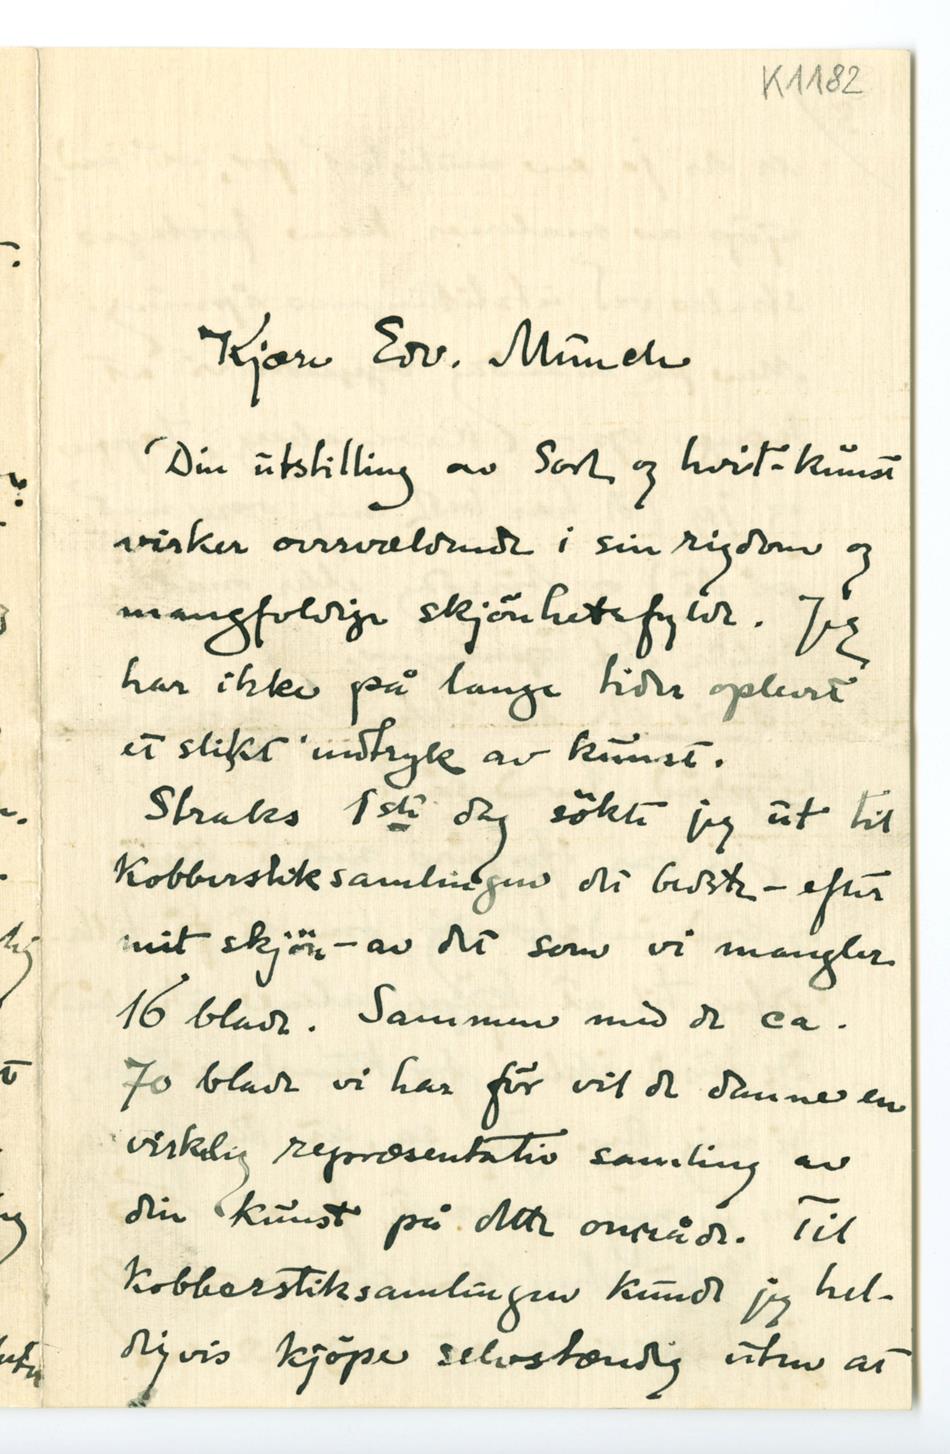 K1182
Kjære Edv. Münch
Din ūtstilling av Sort og hvit-kūnst
virker overvældende i sin rigdom og
mangfoldige skjönhetsfylde. Jeg
har ikke på lange tider oplevet
et slikt indtryk av kūnst.
Straks 1ste dag sökte jeg ūt til
Kobberstiksamlingen det bedste – efter
mit skjön – av det som vi mangler
16 blade. Sammen med de ca.
70 blade vi har för vil de danne en
virkelig repræsentativ samling av
din kūnst på dette område. Til
Kobberstiksamlingen kūnde jeg hel-
digvis kjöpe selvstændig ūten at